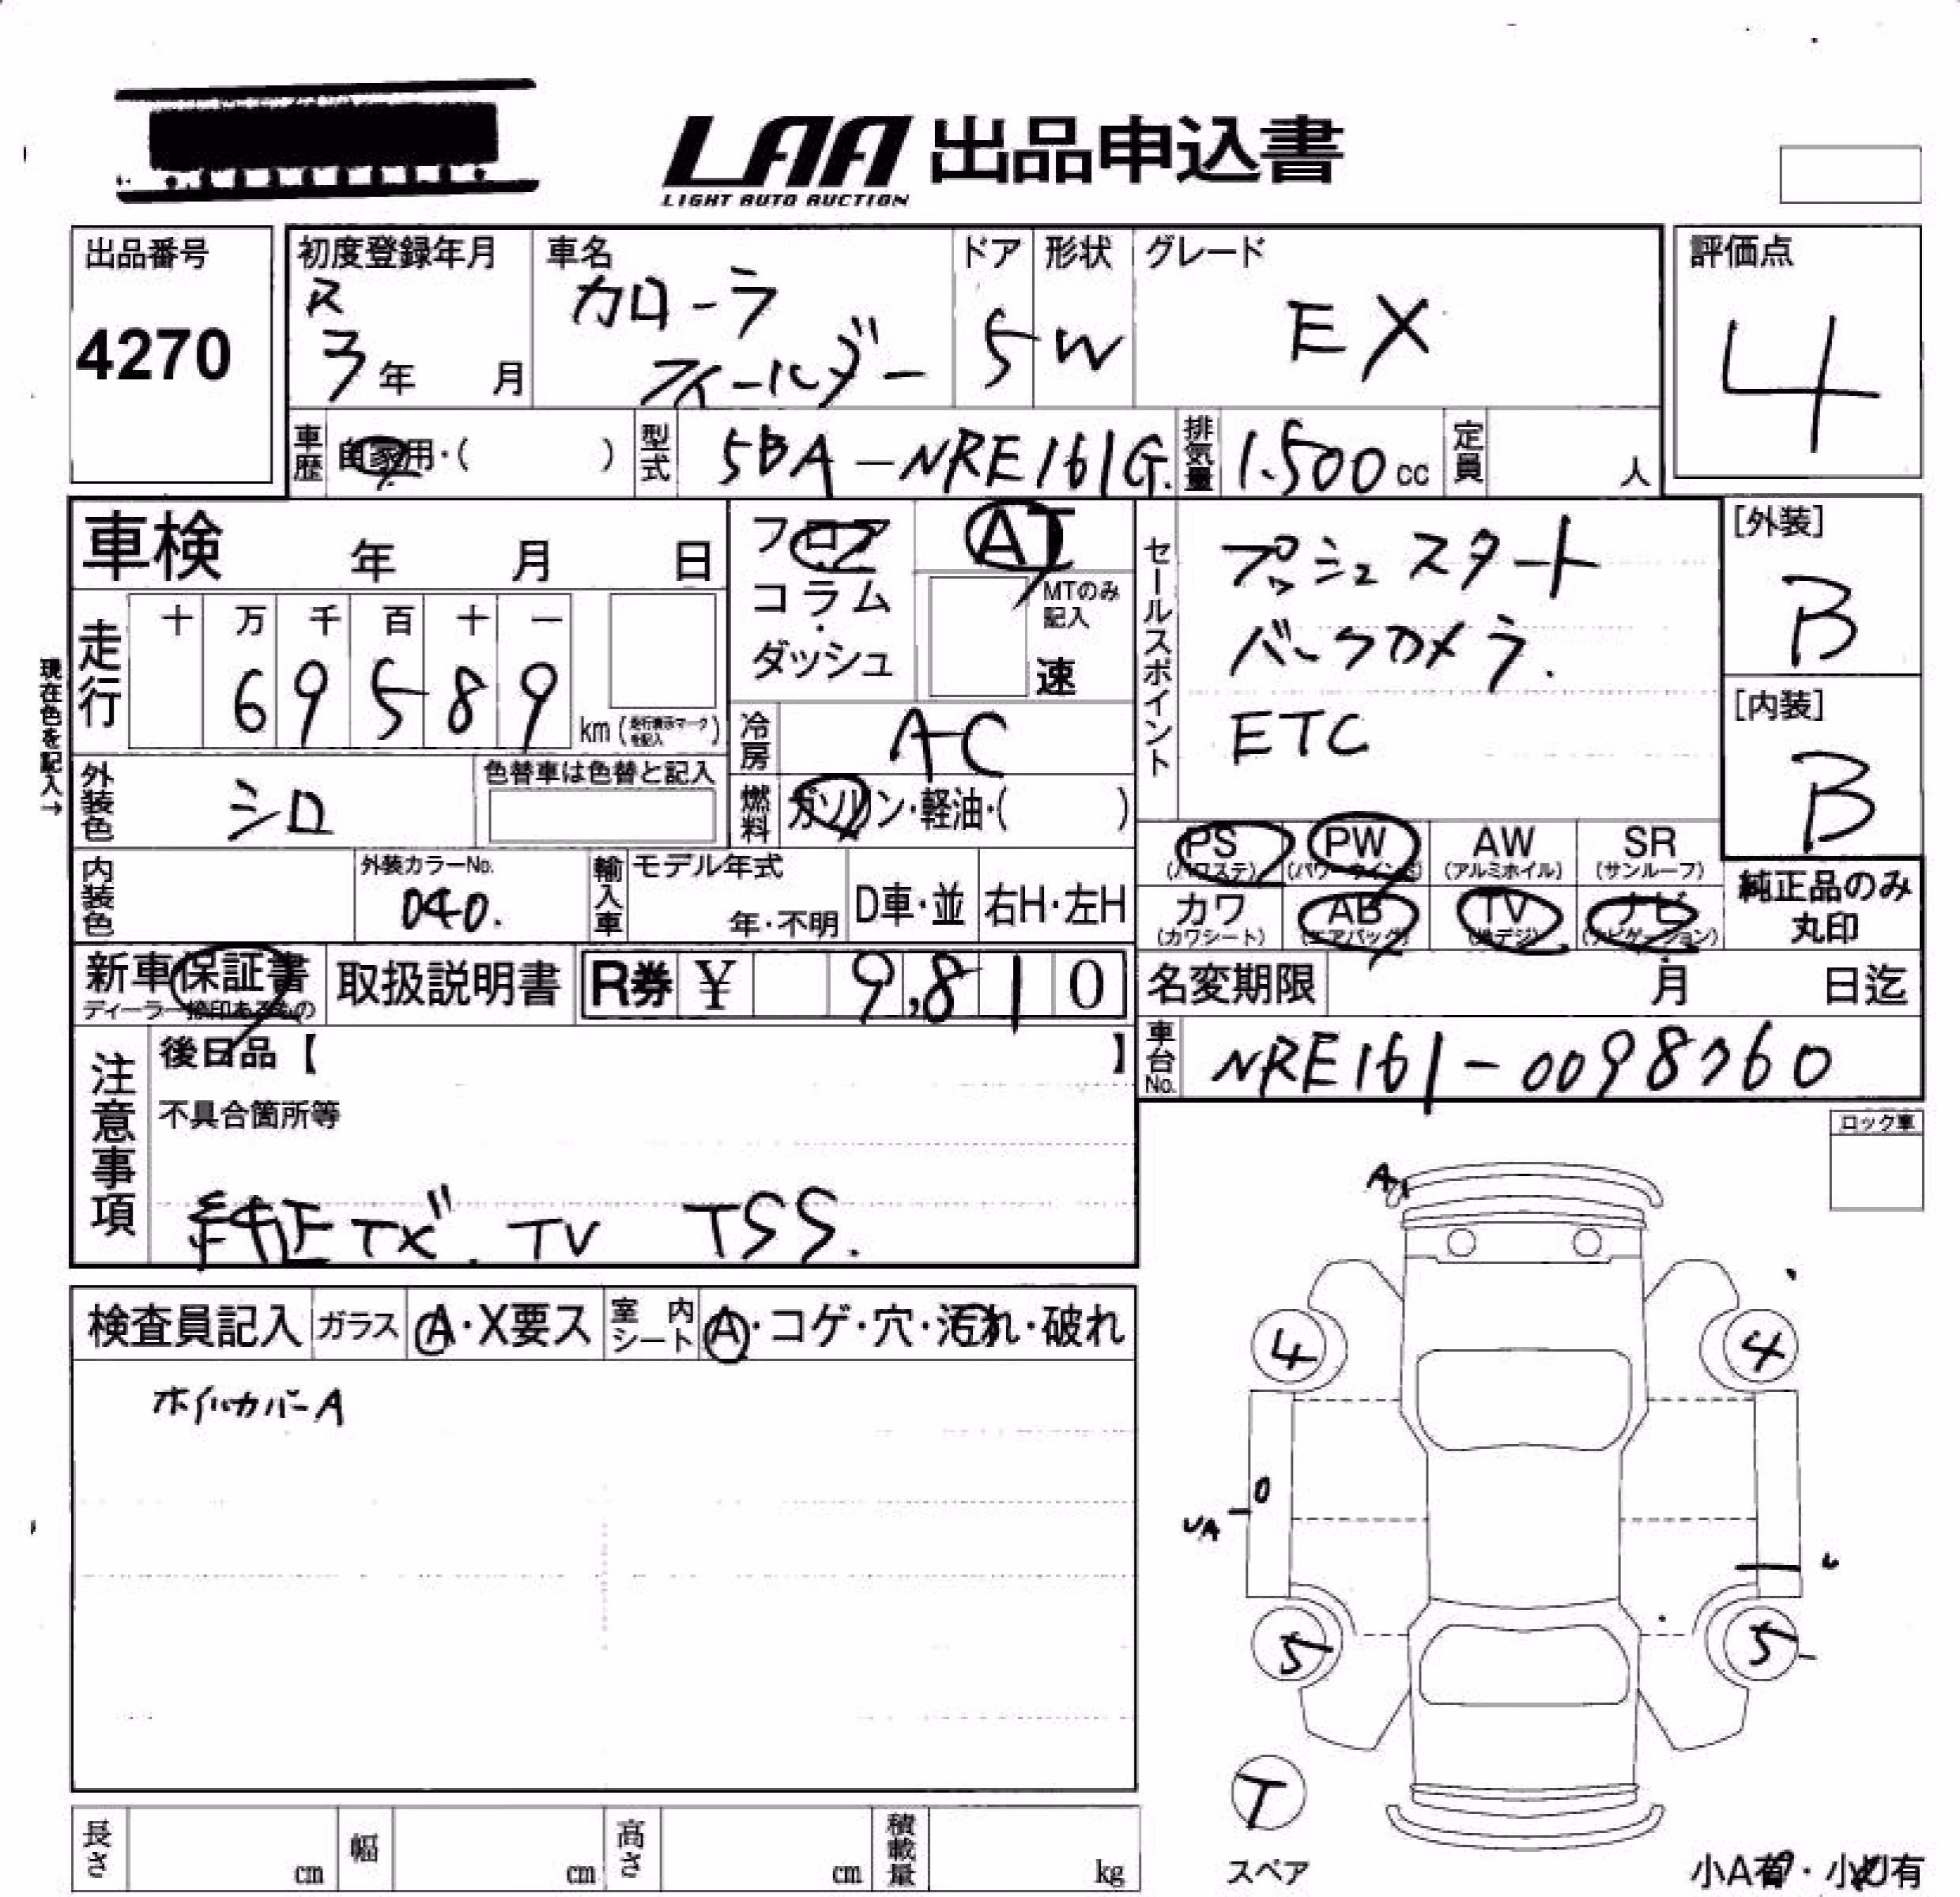 LAA 出品申込書
LIGHT AUTO AUCTION
出品番号
4270
初度登録年月
R
3年 月
車名
カローラ
フィールダー
ドア
5
形状
W
グレード
EX
評価点
4
車歴 自家用・( )
型式 5BA-NRE161G.
排気量 1.500cc
定員 人
車検 年 月 日
フロア
コラム
・
ダッシュ
AT
MTのみ
記入
速
セールスポイント
プッシュスタート
バックカメラ.
ETC
[外装]
B
[内装]
B
現在色を記入→
走行
十 万 千 百 十 一
6 9 5 8 9
km (走行表示マークを記入)
冷房 AC
外装色 シロ
色替車は色替と記入
燃料 ガソリン・軽油・( )
PS (パワステ) PW (パワーウインド) AW (アルミホイル) SR (サンルーフ)
カワ (カワシート) AB (エアバッグ) TV (地デジ) ナビ (ナビゲーション)
純正品のみ
丸印
内装色
外装カラーNo.
040.
輸入車
モデル年式
年・不明
D車・並
右H・左H
新車保証書
ディーラー捺印あるもの
取扱説明書
R券 ¥ 9,810
名変期限 月 日迄
車台No. NRE161-0098760
注意事項
後日品【 】
不具合箇所等
純正ナビ. TV TSS.
ロック車
検査員記入 ガラス A・X要ス 室内シート A・コゲ・穴・汚れ・破れ
ホイルカバーA
A1
4
4
0
UA
U
5
5
T
スペア
長さ cm 幅 cm 高さ cm 積載量 kg
小A有・小U有